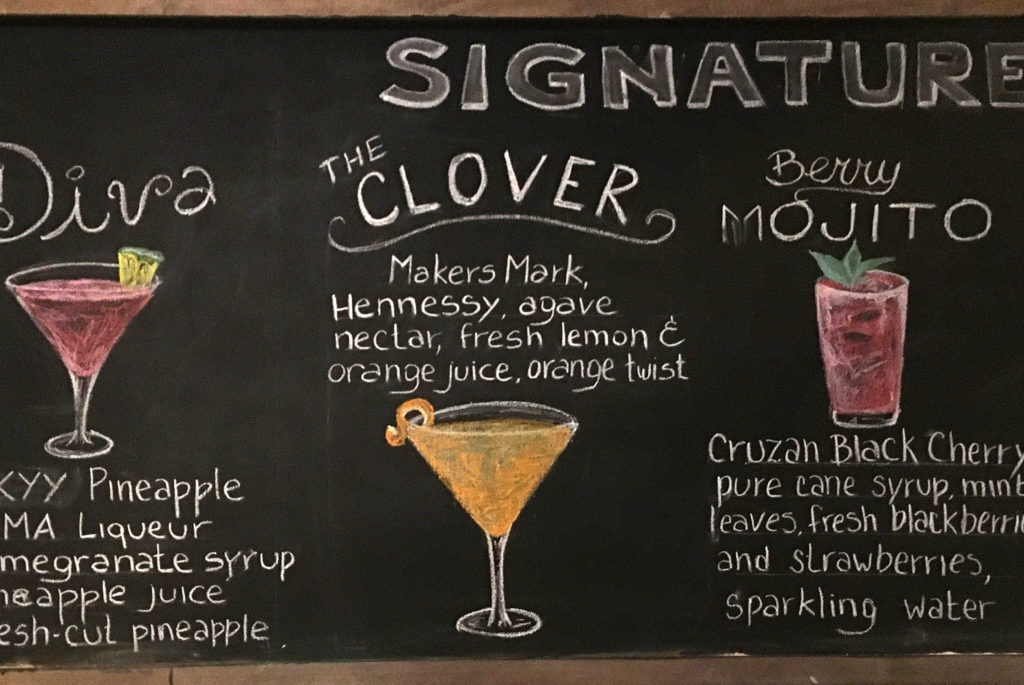 SIGNATURE
Diva
KYY Pineapple
MA Liqueur
megranate syrup
neapple juice
esh-cut pineapple
THE
CLOVER
Makers Mark,
Hennessy, agave
nectar, fresh lemon &
orange juice, orange twist
Berry
MOJITO
Cruzan Black Cherry
pure cane syrup, mint
leaves, fresh blackberrie
and strawberries,
sparkling water